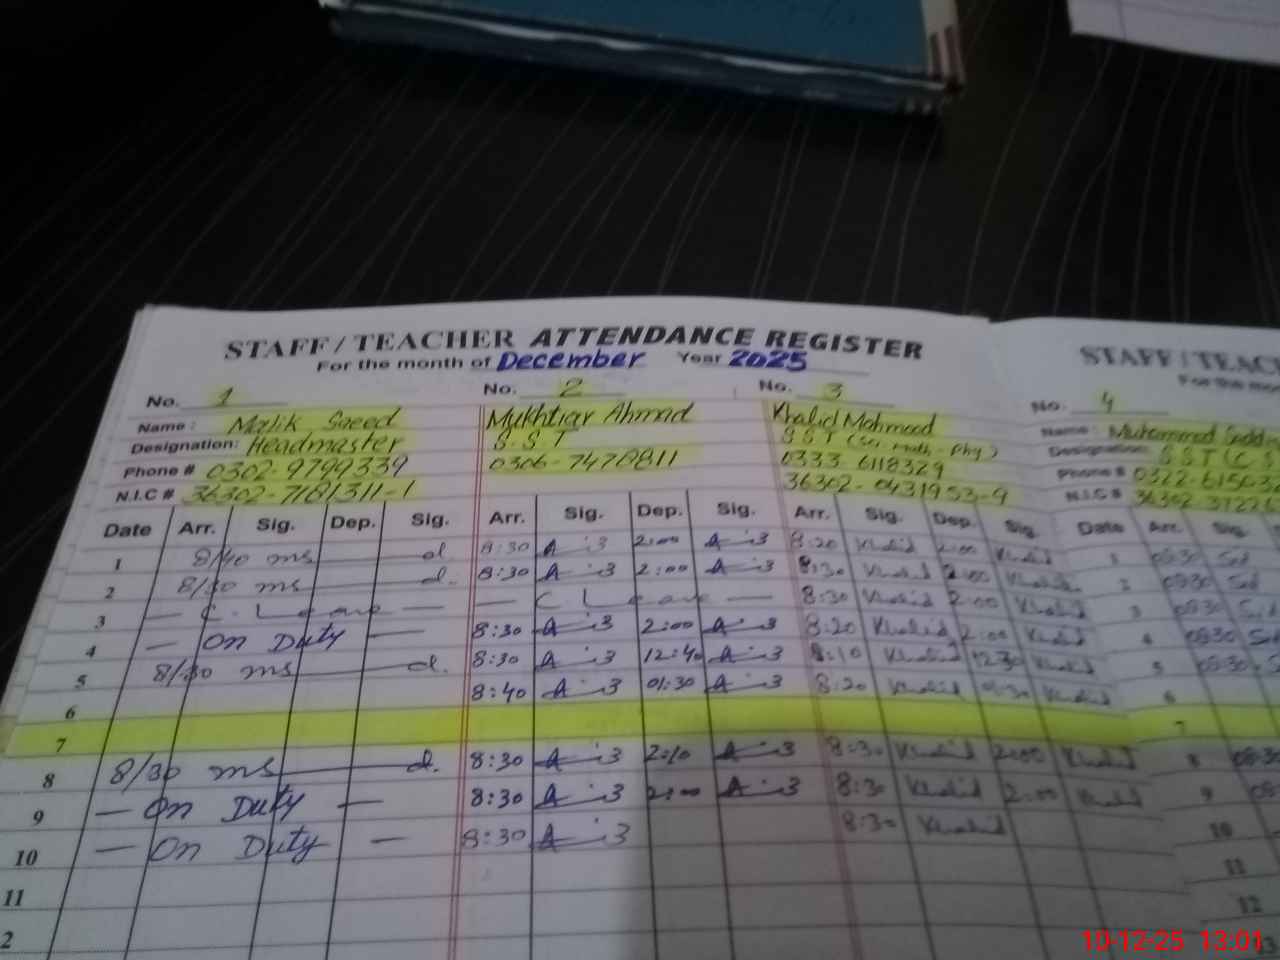 STAFF/TEACHER ATTENDANCE REGISTER
For the month of December Year 2025
No. 1 No. 2 No. 3
Name: Malik Saeed Mukhtiar Ahmad Khalid Mahmood
Designation: Headmaster S.S.T SST (Sci, math - Phy)
Phone # 0302-9799339 0306-7478811 0333 6118329
N.I.C # 36302-7181311-1 36302-0431953-9
Date Arr. Sig. Dep. Sig. Arr. Sig. Dep. Sig. Arr. Sig. Dep. Sig.
1 8/40 ms 8:30 2:00 8:20 Khalid 2:00 Khalid
2 8/30 ms 8:30 2:00 8:30 Khalid 2:00 Khalid
3 — C. Leave — — C. Leave — 8:30 Khalid 2:00 Khalid
4 — On Duty — 8:30 2:00 8:20 Khalid 2:00 Khalid
5 8/30 ms 8:30 12:40 8:10 Khalid 12:30 Khalid
6 8:40 01:30 8:20 Khalid 01:30 Khalid
7
8 8/30 ms 8:30 2:10 8:30 Khalid 2:00 Khalid
9 — On Duty — 8:30 2:00 8:30 Khalid 2:00 Khalid
10 — On Duty — 8:30 8:30 Khalid
11
2
STAFF/TEAC
For the mo
No. 4
Name: Muhammad
Designation: SST (C.S
Phone # 0322-61503
N.I.C # 36302
Date Arr. Sig.
1 08:30
2 08:30
3 08:30
4 08:30
5 08:30
6
7
8 08:30
9 08:
10
11
12
13
10-12-25 13:01